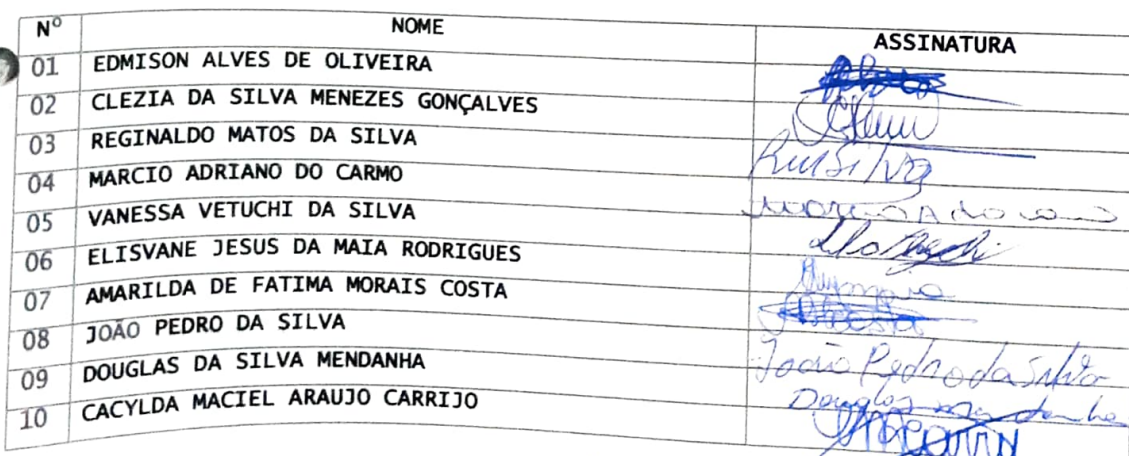 Nº NOME ASSINATURA
01 EDMISON ALVES DE OLIVEIRA
02 CLEZIA DA SILVA MENEZES GONÇALVES
03 REGINALDO MATOS DA SILVA
04 MARCIO ADRIANO DO CARMO
05 VANESSA VETUCHI DA SILVA
06 ELISVANE JESUS DA MAIA RODRIGUES
07 AMARILDA DE FATIMA MORAIS COSTA
08 JOÃO PEDRO DA SILVA João Pedro da Silva
09 DOUGLAS DA SILVA MENDANHA Douglas
10 CACYLDA MACIEL ARAUJO CARRIJO